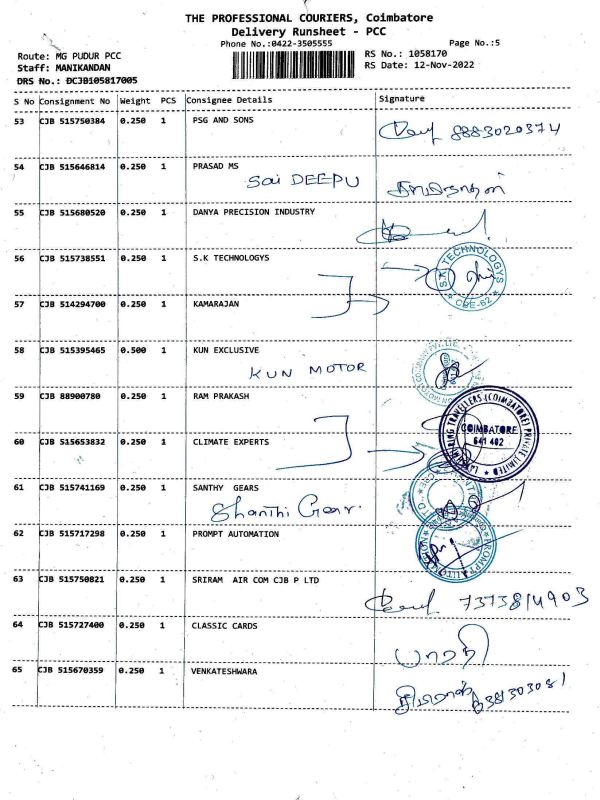 THE PROFESSIONAL COURIERS, Coimbatore
Delivery Runsheet - PCC
Phone No.:0422-3505555 Page No.:5
Route: MG PUDUR PCC RS No.: 1058170
Staff: MANIKANDAN RS Date: 12-Nov-2022
DRS No.: DCJB105817005
S No Consignment No Weight PCS Consignee Details Signature
53 CJB 515750384 0.250 1 PSG AND SONS
8883020374
54 CJB 515646814 0.250 1 PRASAD MS
Sai DEEPU
55 CJB 515680520 0.250 1 DANYA PRECISION INDUSTRY
56 CJB 515738551 0.250 1 S.K TECHNOLOGYS
S.K TECHNOLOGYS
CBE-62
57 CJB 514294700 0.250 1 KAMARAJAN
58 CJB 515395465 0.500 1 KUN EXCLUSIVE
KUN MOTOR
59 CJB 88900780 0.250 1 RAM PRAKASH
60 CJB 515653832 0.250 1 CLIMATE EXPERTS
TRAVELLERS (COIMBATORE) PRIVATE LIMITED
COIMBATORE
641 402
61 CJB 515741169 0.250 1 SANTHY GEARS
Shanthi Gear.
62 CJB 515717298 0.250 1 PROMPT AUTOMATION
PROMPT AUTOMATION
63 CJB 515750821 0.250 1 SRIRAM AIR COM CJB P LTD
7373814903
64 CJB 515727400 0.250 1 CLASSIC CARDS
பாரதி
65 CJB 515670359 0.250 1 VENKATESHWARA